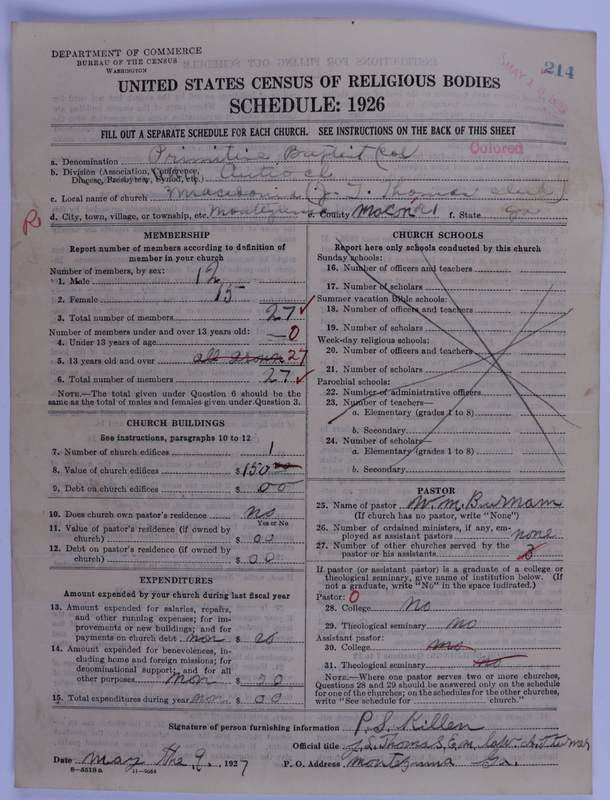 DEPARTMENT OF COMMERCE
BUREAU OF THE CENSUS
WASHINGTON
214
MAY 1
UNITED STATES CENSUS OF RELIGIOUS BODIES
SCHEDULE: 1926
FILL OUT A SEPARATE SCHEDULE FOR EACH CHURCH. SEE INSTRUCTIONS ON THE BACK OF THIS SHEET
Colored
a. Denomination Primitive Baptist Col
b. Division (Association, Conference, Diocese, Presbytery, Synod, etc.) Antioch
c. Local name of church Macedonia (J. T. Thomas clerk)
d. City, town, village, or township, etc. Montezuma e. County Macon f. State Ga
R
MEMBERSHIP
Report number of members according to definition of
member in your church
Number of members, by sex:
1. Male 12
2. Female 15
3. Total number of members 27
Number of members under and over 13 years old:
4. Under 13 years of age — 0
5. 13 years old and over all grown 27
6. Total number of members 27
NOTE.—The total given under Question 6 should be the
same as the total of males and females given under Question 3.
CHURCH BUILDINGS
See instructions, paragraphs 10 to 12
7. Number of church edifices 1
8. Value of church edifices $ 150 00
9. Debt on church edifices $ 00
10. Does church own pastor's residence no
Yes or No
11. Value of pastor's residence (if owned by
church) $ 00
12. Debt on pastor's residence (if owned by
church) $ 00
EXPENDITURES
Amount expended by your church during last fiscal year
13. Amount expended for salaries, repairs,
and other running expenses; for im-
provements or new buildings; and for
payments on church debt $
14. Amount expended for benevolences, in-
cluding home and foreign missions; for
denominational support; and for all
other purposes $
15. Total expenditures during year $ 00
CHURCH SCHOOLS
Report here only schools conducted by this church
Sunday schools:
16. Number of officers and teachers
17. Number of scholars
Summer vacation Bible schools:
18. Number of officers and teachers
19. Number of scholars
Week-day religious schools:
20. Number of officers and teachers
21. Number of scholars
Parochial schools:
22. Number of administrative officers
23. Number of teachers—
a. Elementary (grades 1 to 8)
b. Secondary
24. Number of scholars—
a. Elementary (grades 1 to 8)
b. Secondary
PASTOR
25. Name of pastor W. M. Burnam
(If church has no pastor, write "None")
26. Number of ordained ministers, if any, em-
ployed as assistant pastors none
27. Number of other churches served by the
pastor or his assistants 3
If pastor (or assistant pastor) is a graduate of a college or
theological seminary, give name of institution below. (If
not a graduate, write "No" in the space indicated.)
Pastor: 0
28. College no
29. Theological seminary no
Assistant pastor:
30. College no
31. Theological seminary no
NOTE.—Where one pastor serves two or more churches,
Questions 28 and 29 should be answered only on the schedule
for one of the churches; on the schedules for the other churches,
write "See schedule for church."
Signature of person furnishing information P. S. Killen
Official title J. S. Thomas
Date May the 9, 1927 P. O. Address Montezuma Ga
8—5518a 11—9054